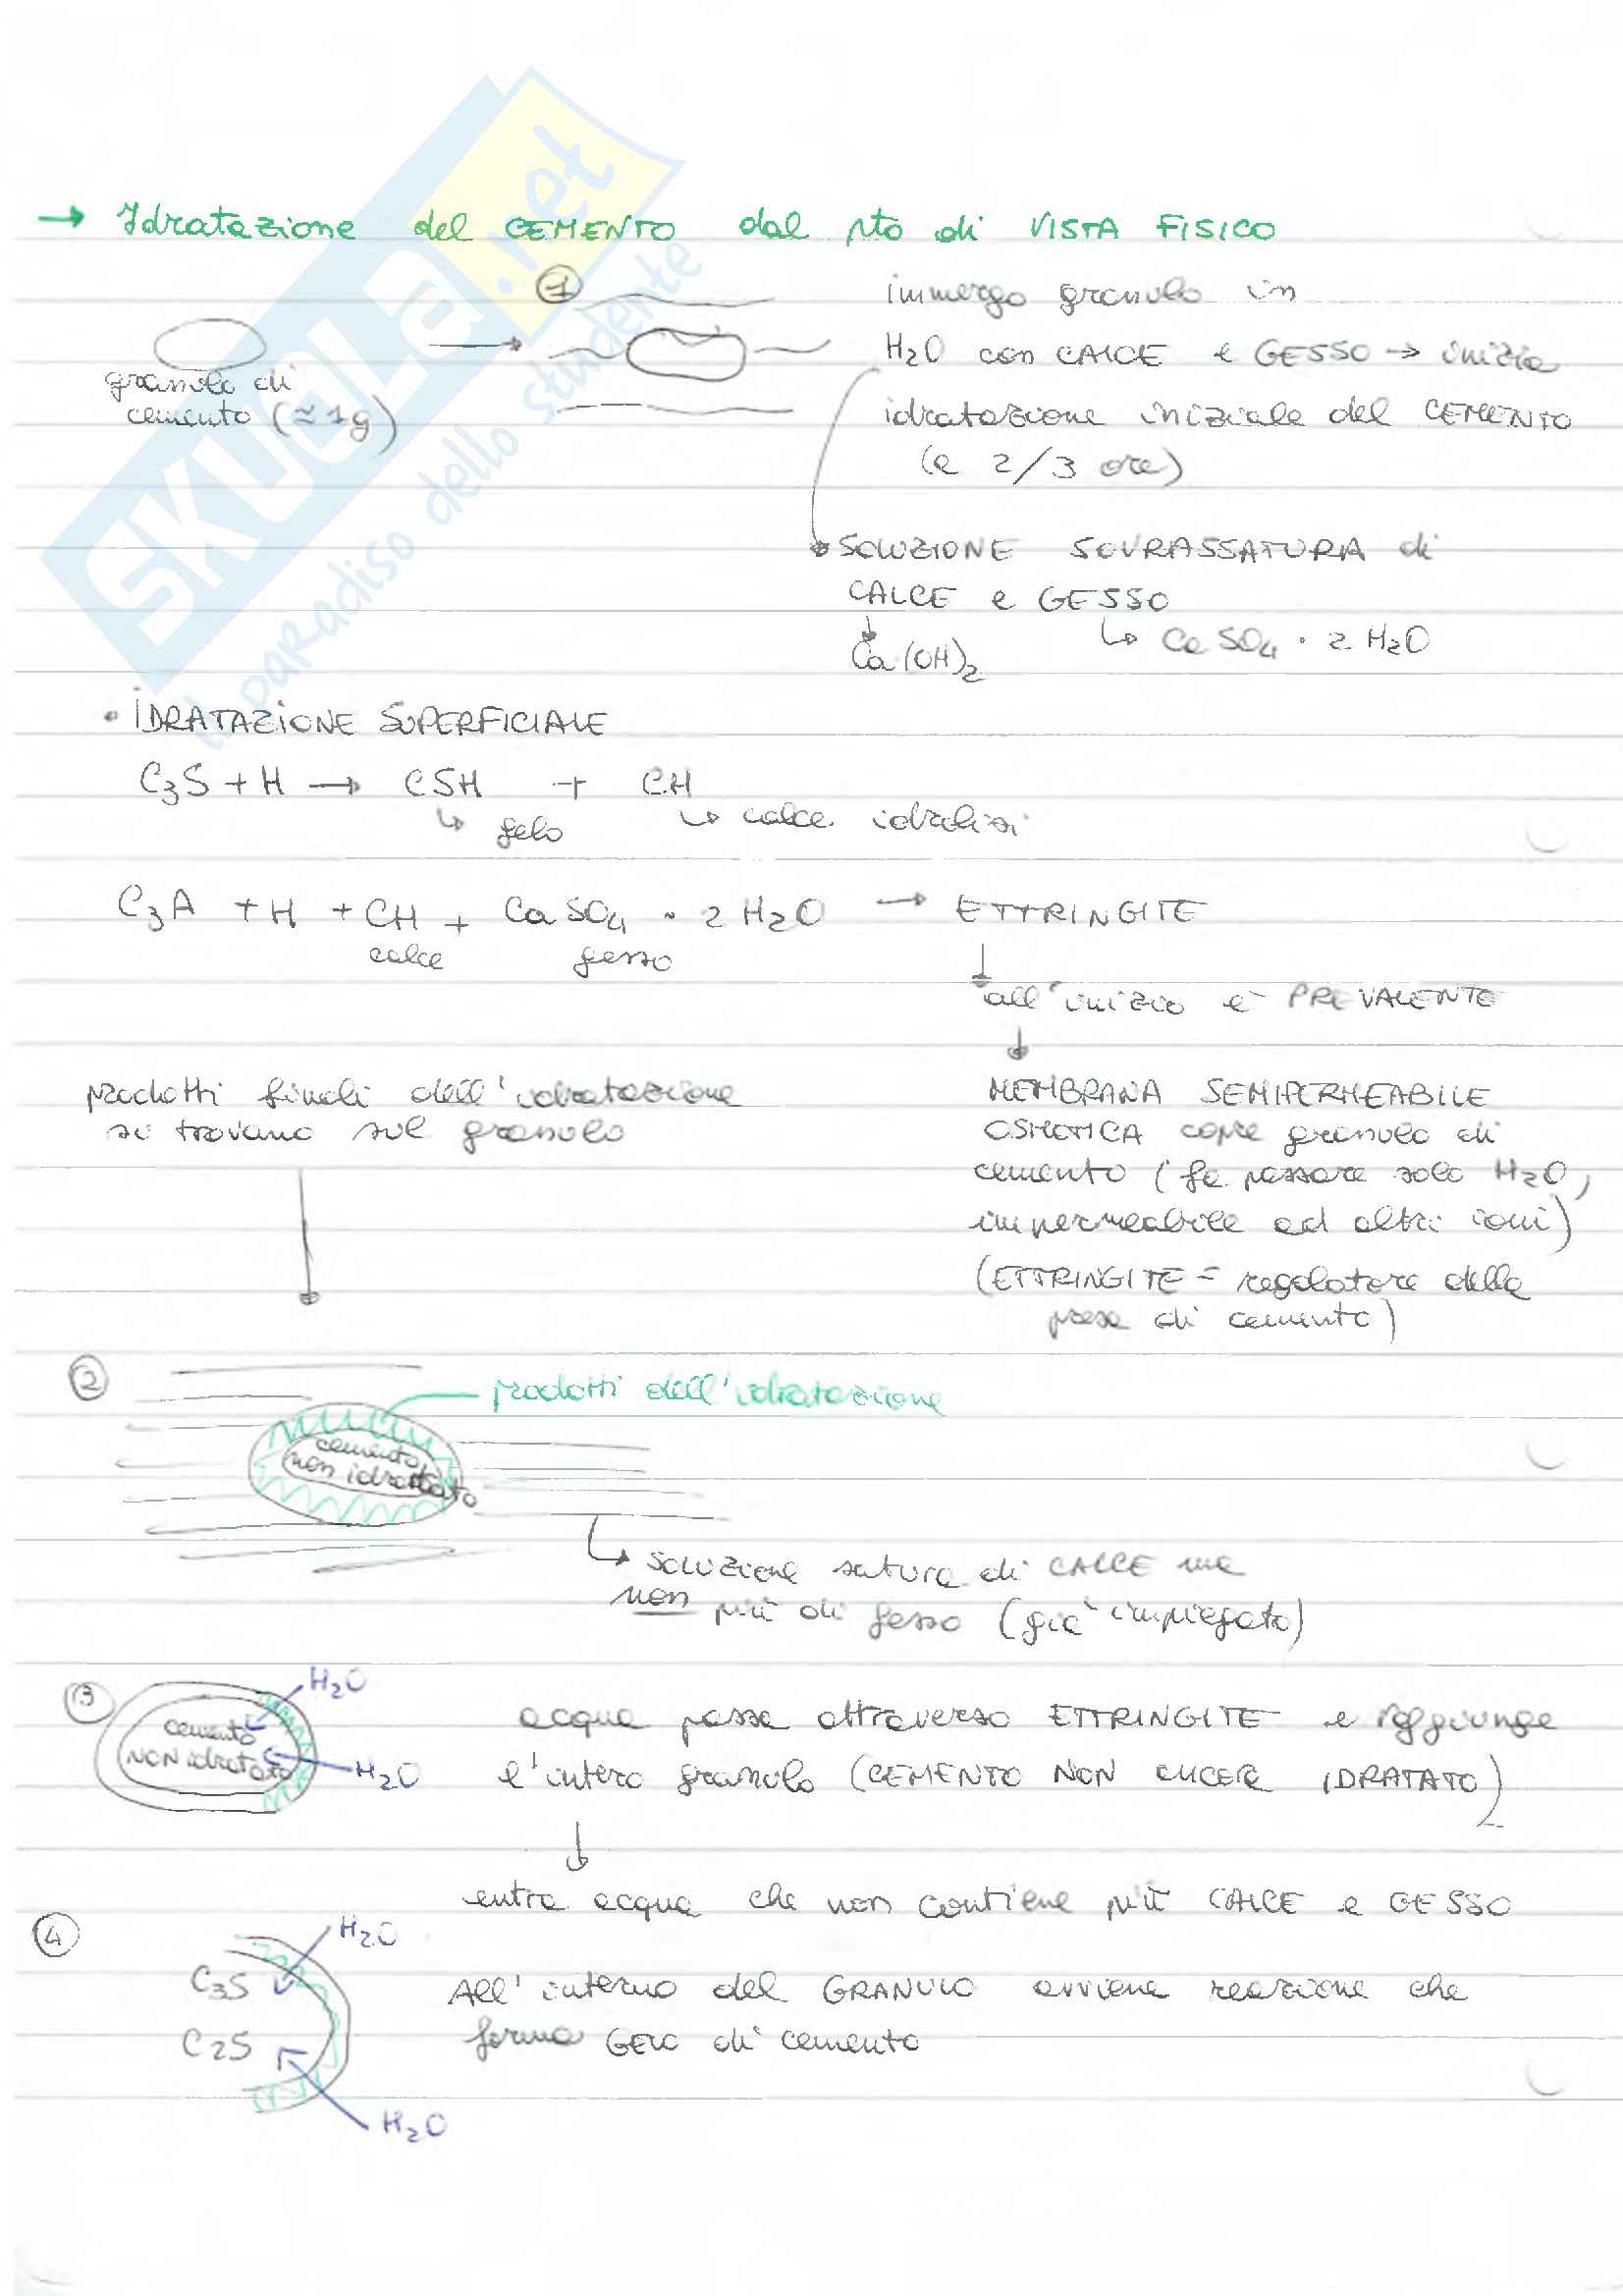 → Idratazione del CEMENTO dal pto di VISTA FISICO
①
immergo granulo in
H₂O con CALCE e GESSO → inizia
idratazione iniziale del CEMENTO
(a 2/3 ore)
granulo di
cemento (≃1g)
SOLUZIONE SOVRASSATURA di
CALCE e GESSO
Ca(OH)₂ ↳ CaSO₄ · 2 H₂O
• IDRATAZIONE SUPERFICIALE
C₃S + H → CSH + CH
↳ gelo ↳ calce
C₃A + H + CH + CaSO₄ · 2 H₂O → ETTRINGITE
calce gesso
all'inizio è PREVALENTE
prodotti finali dell'idratazione
si trovano sul granulo
MEMBRANA SEMIPERMEABILE
OSMOTICA copre granulo di
cemento (fa passare solo H₂O,
impermeabile ad altri ioni)
(ETTRINGITE = regolatore della
presa di cemento)
②
prodotti dell'idratazione
cemento
non idratato
↳ soluzione satura di CALCE ma
non più di gesso (già impiegato)
③
H₂O
cemento
NON idratato
H₂O
acqua passa attraverso ETTRINGITE e raggiunge
l'intero granulo (CEMENTO NON ANCORA IDRATATO)
entra acqua che non contiene più CALCE e GESSO
④
H₂O
C₃S
C2S
H₂O
All'interno del GRANULO avviene reazione che
forma GELO di cemento
SKUOLA.net
il paradiso dello studente